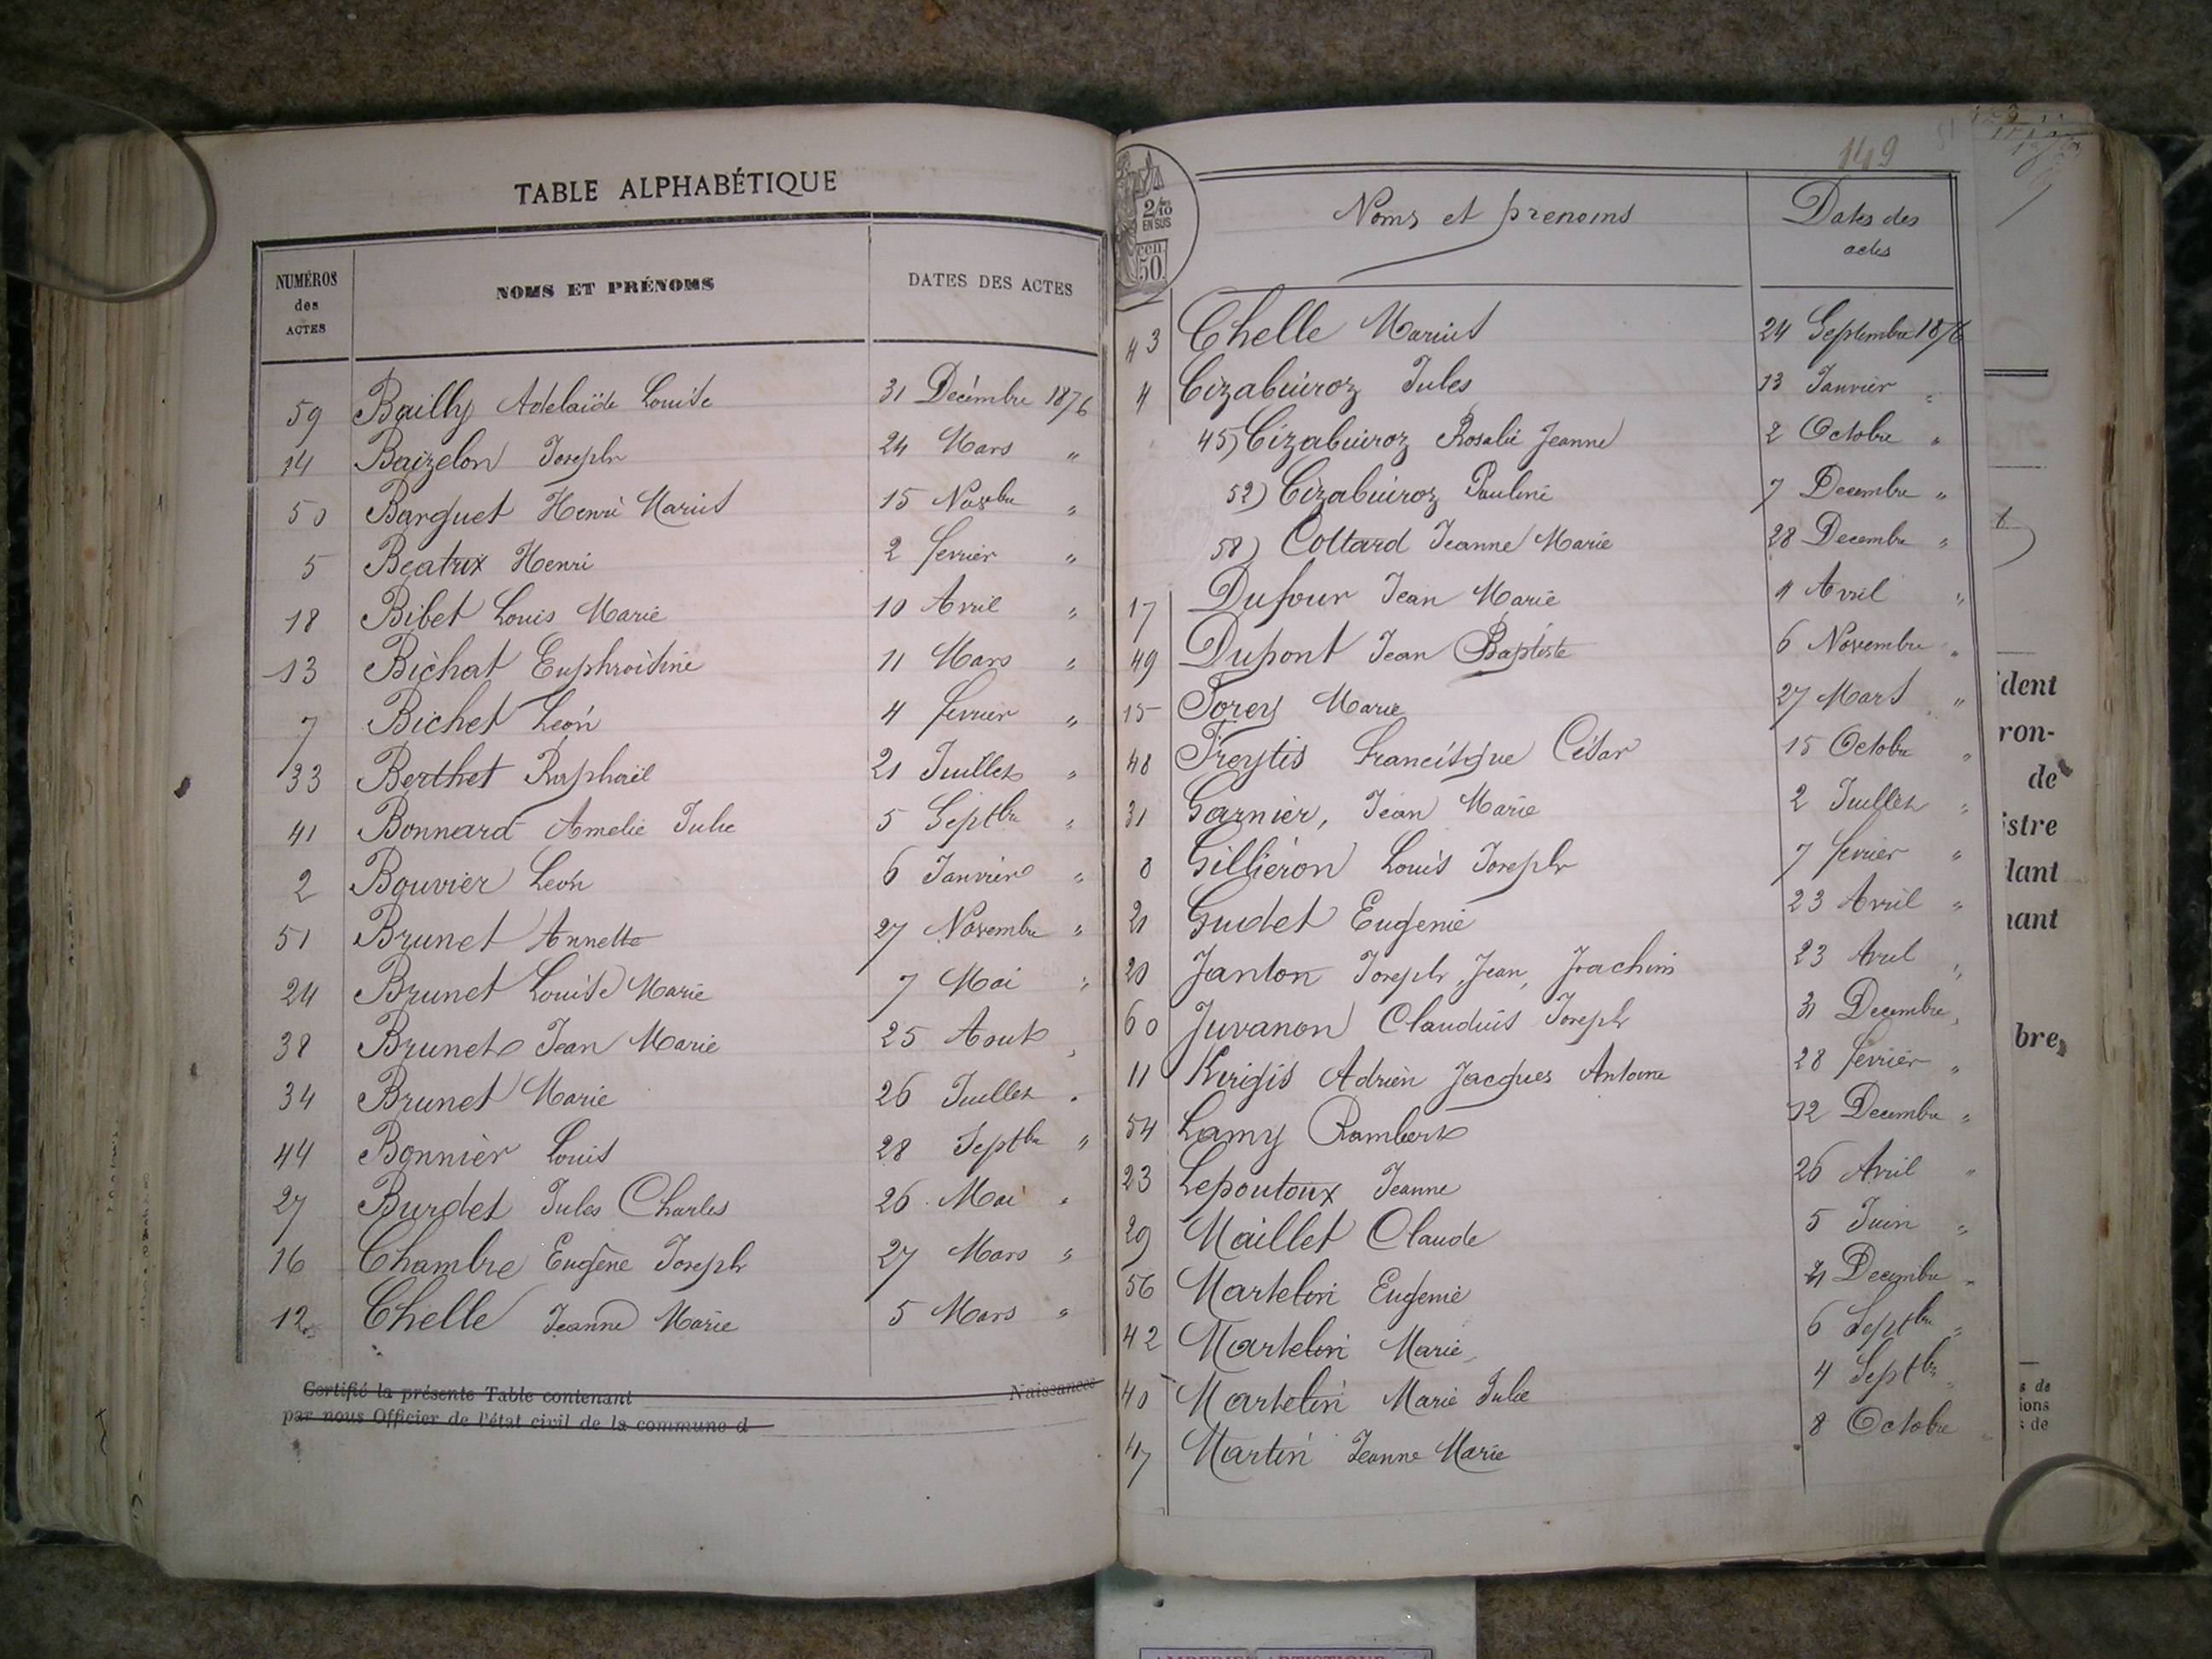 TABLE ALPHABÉTIQUE
NUMÉROS des ACTES NOMS ET PRÉNOMS DATES DES ACTES
59 Bailly Adelaïde Louise 31 Decémbre 1876
14 Baizelon Joseph 24 Mars "
50 Barquet Henri Marius 15 Novbre "
5 Beatrix Henri 2 fevrier "
18 Bibet Louis Marie 10 Avril "
13 Bichat Euphroisine 11 Mars "
7 Bichet Leon 4 fevrier "
33 Berthet Raphaël 21 Juillet "
41 Bonnard Amelie Julie 5 Septbre "
2 Bouvier Leon 6 Janvier "
51 Brunet Annette 27 Novembre "
24 Brunet Louise Marie 7 Mai "
38 Brunet Jean Marie 25 Aout "
34 Brunet Marie 26 Juillet "
44 Bonnier Louis 28 Septbre "
27 Burdet Jules Charles 26 Mai "
16 Chambre Eugène Joseph 27 Mars "
12 Chelle Jeanne Marie 5 Mars "
Certifié la présente Table contenant Naissances
par nous Officier de l'état civil de la commune d
149
2/10
EN SUS
50
Noms et prenoms Dates des actes
43 Chelle Marius 24 Septembre 1876
4 Cizabuiroz Jules 13 Janvier "
45) Cizabuiroz Rosalie Jeanne 2 Octobre "
52) Cizabuiroz Pauline 7 Decembre "
58) Collard Jeanne Marie 28 Decembre "
17 Dufour Jean Marie 4 Avril "
49 Dupont Jean Baptiste 6 Novembre "
15 Forey Marie 27 Mars "
48 Freytis Francisque César 15 Octobre "
31 Garnier, Jean Marie 2 Juillet "
8 Gilliéron Louis Joseph 7 fevrier "
21 Gudet Eugenie 23 Avril "
20 Janton Joseph, Jean, Joachim 23 Avril "
60 Juvanon Claudius Joseph 31 Decembre "
11 Kirigis Adrien Jacques Antoine 28 fevrier "
54 Lamy Rambert 12 Decembre "
23 Lepoutoux Jeanne 26 Avril "
29 Maillet Claude 5 Juin "
56 Martelin Eugenie 21 Decembre "
42 Martelin Marie 6 Septbre "
40 Martelin Marie Julie 4 Septbre "
47 Martin Jeanne Marie 8 Octobre
dent
ron-
de
istre
lant
nant
bre,
s de
ions
: de